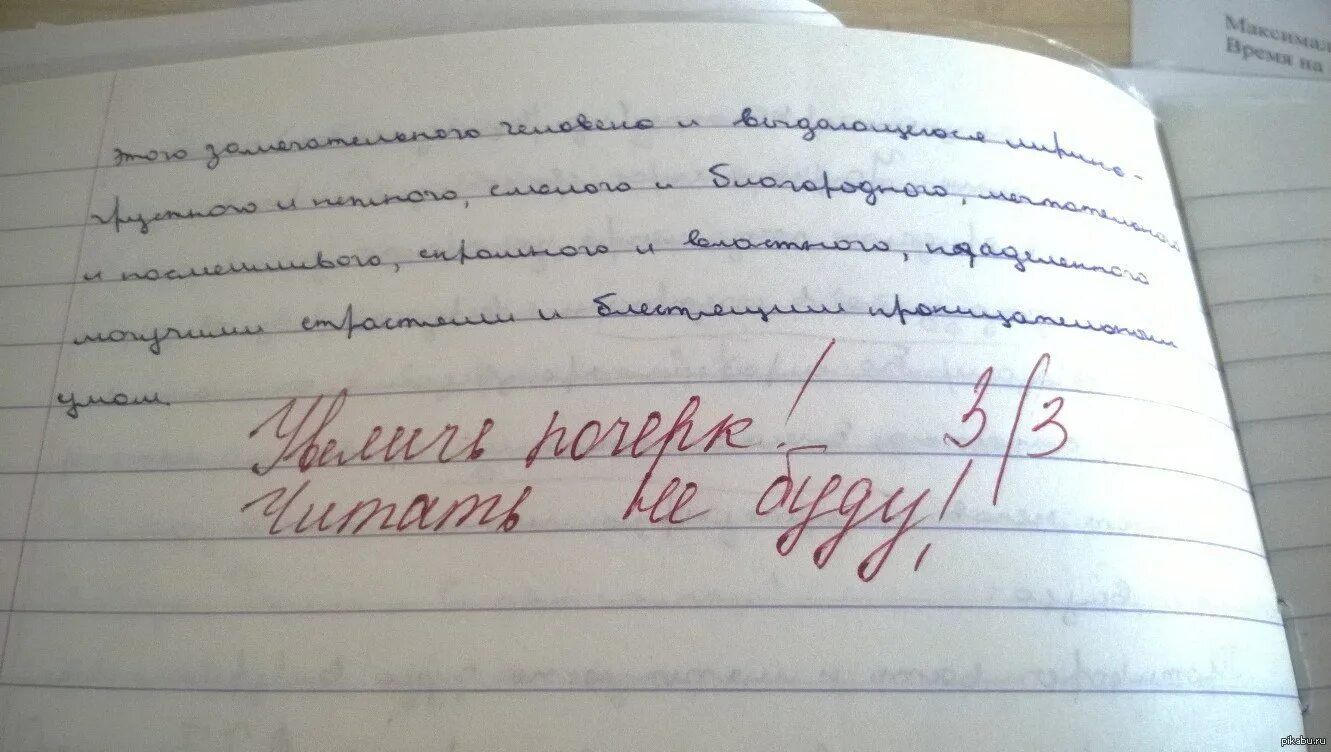 Максимал
Время на
этого замечательного человека и выдающегося лирика-
грустного и нежного, смелого и благородного, мечтательного
и насмешливого, скромного и властного, наделенного
могучими страстями и блестящим проницательным
умом
Увеличь почерк! 3/3
Читать не буду!
pikabu.ru